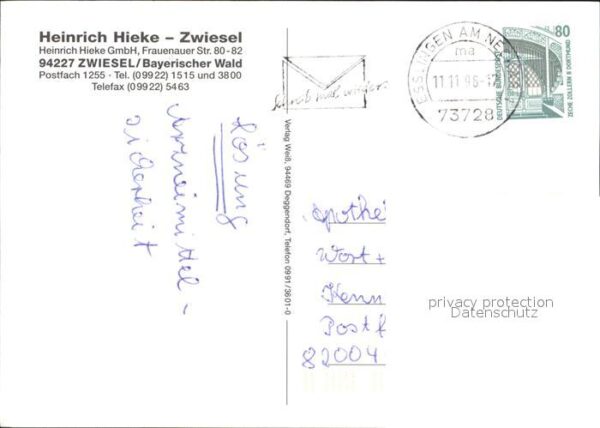 Heinrich Hieke – Zwiesel
Heinrich Hieke GmbH, Frauenauer Str. 80-82
94227 ZWIESEL/Bayerischer Wald
Postfach 1255 · Tel. (09922) 1515 und 3800
Telefax (09922) 5463
Schreib mal wieder
ESSLINGEN AM NE
ma
11.11.96-17
73728
80
DEUTSCHE BUNDESPOST
ZECHE ZOLLERN II DORTMUND
Lösung
Arzneimittel-
sicherheit
Verlag Weiß, 94469 Deggendorf, Telefon 0991/3601-0
Apothe
Wort +
Kenn
Postf
82004
privacy protection
Datenschutz